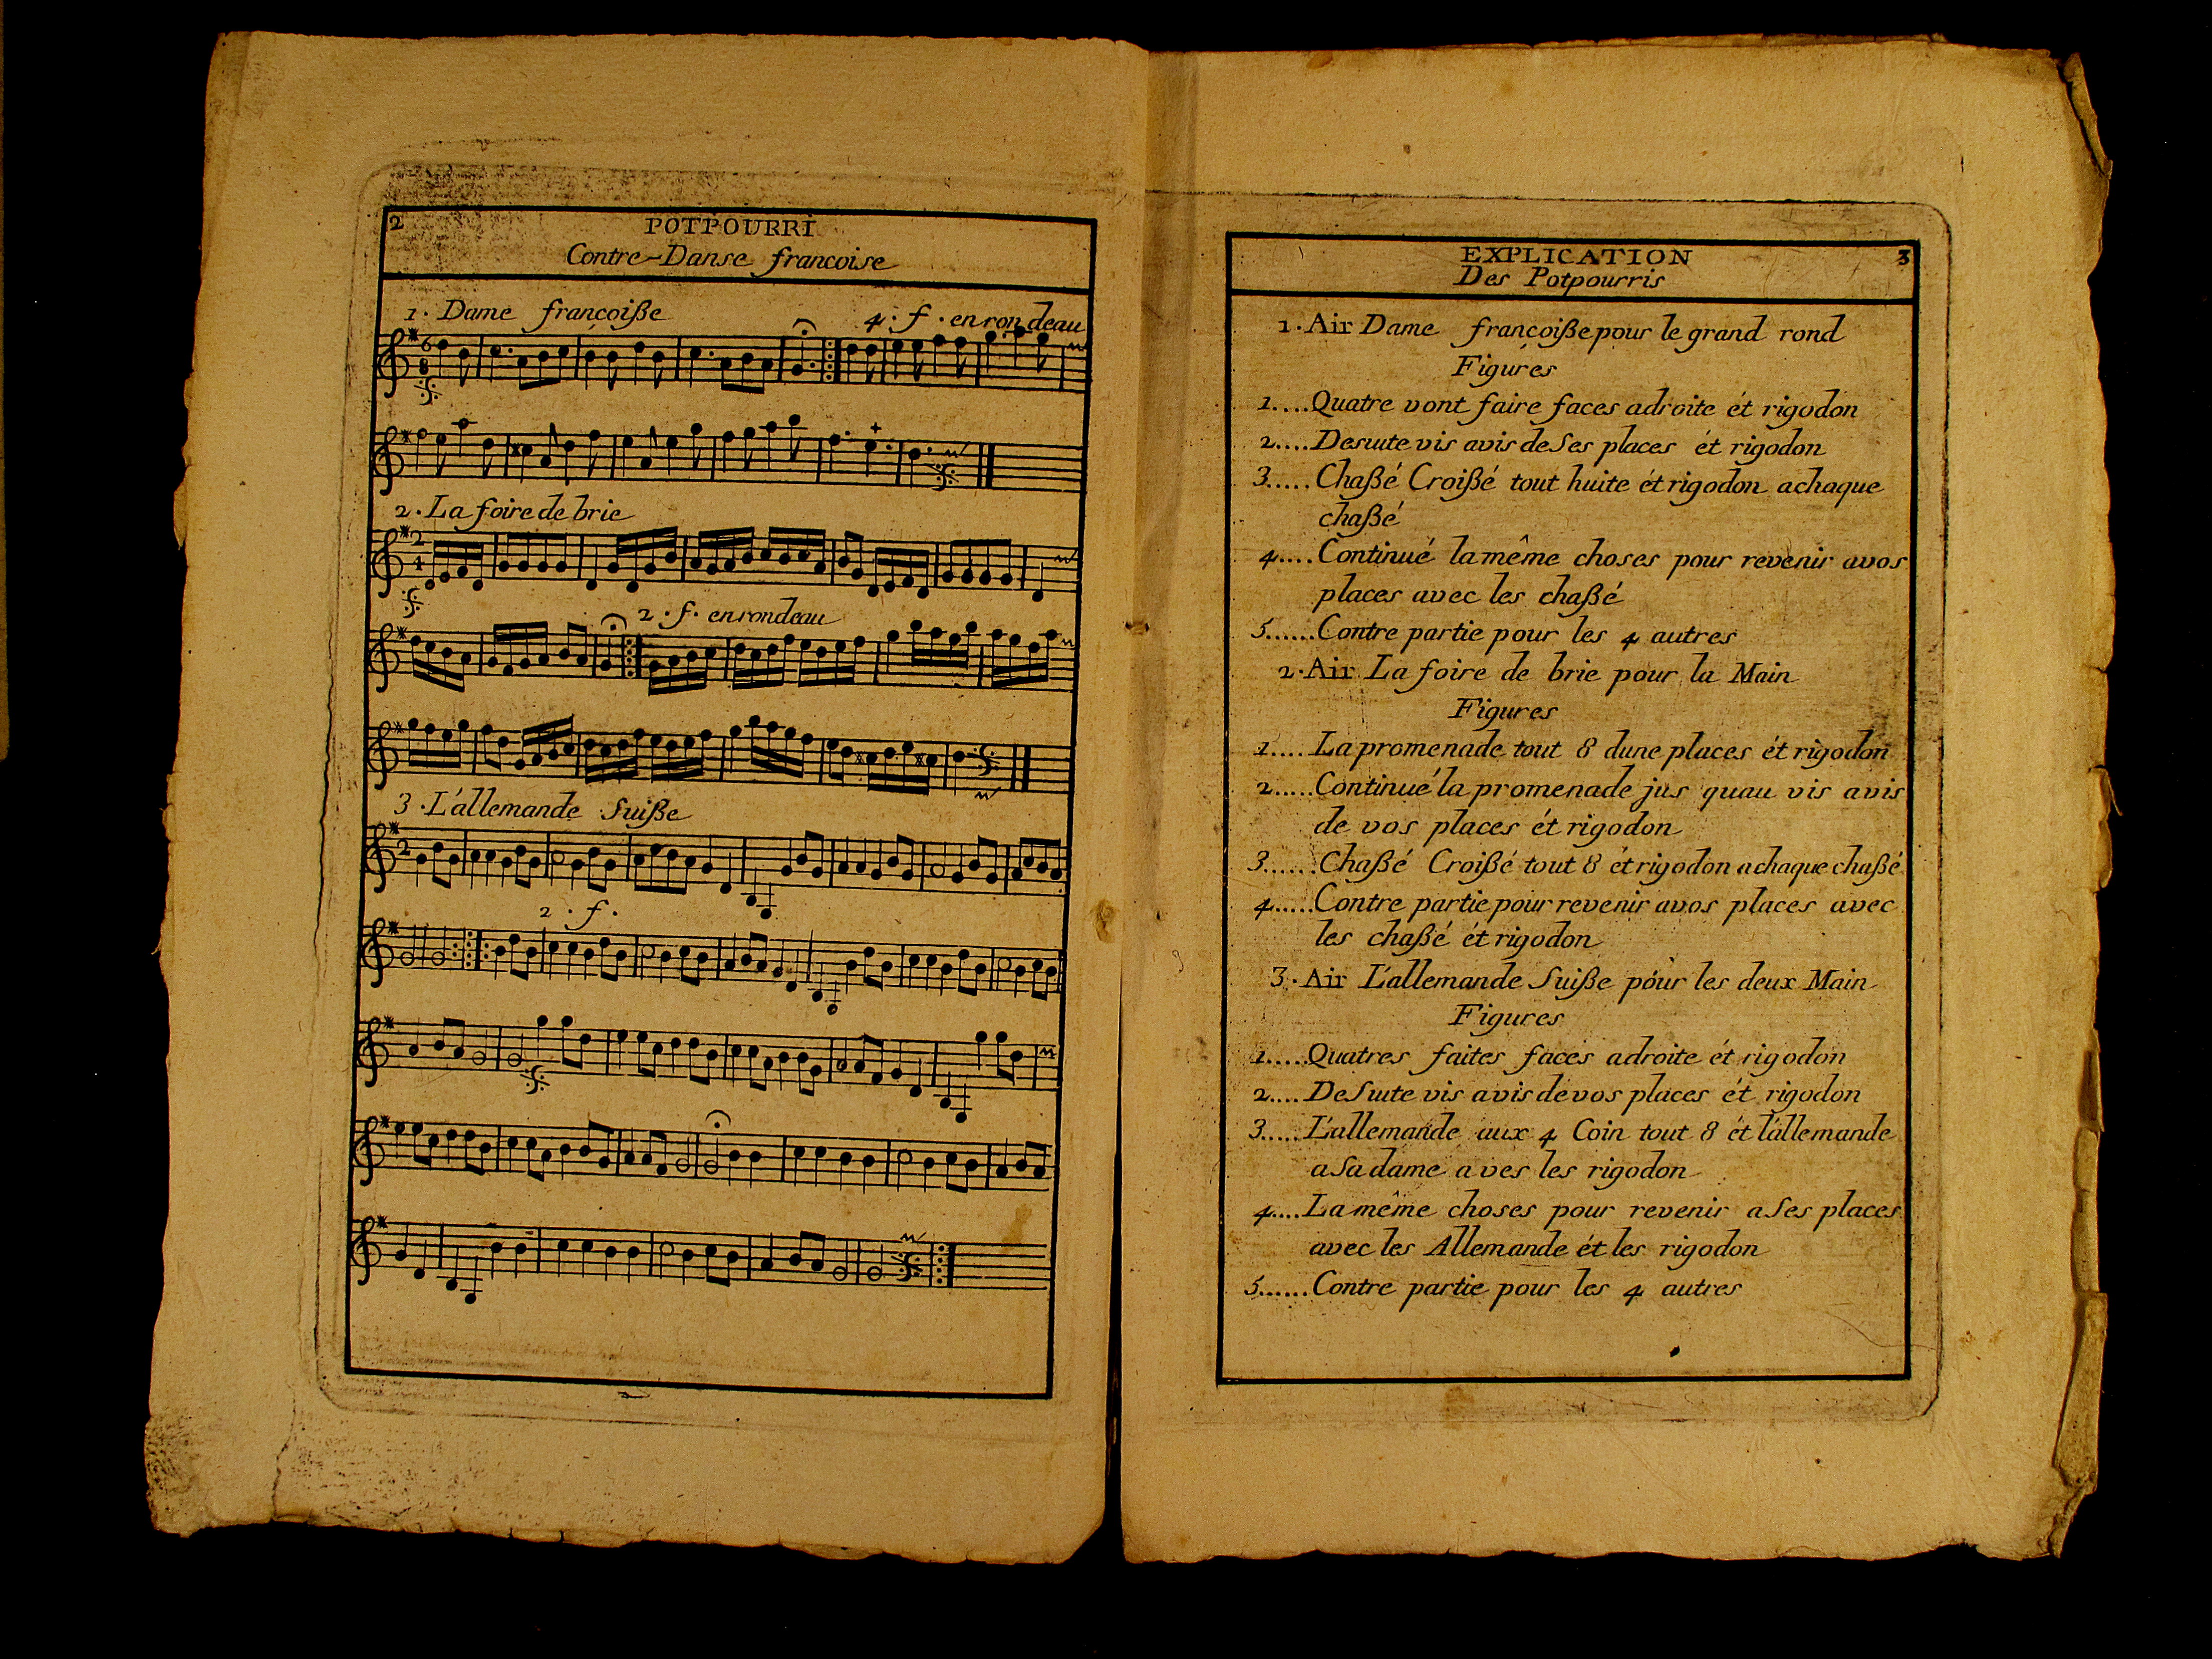 2
POTPOURRI
Contre-Danse francoise
1. Dame françoiße
4. f. en rondeau
6
8
2. La foire de brie
2
4
2. f. en rondeau
3. L'allemande Suiße
2
2. f.
EXPLICATION
3
Des Potpourris
1. Air Dame françoiße pour le grand rond
Figures
1....Quatre vont faire faces adroite ét rigodon
2....Desuite vis avis de Ses places ét rigodon
3.....Chaßé Croißé tout huite ét rigodon achaque
chaßé
4....Continué la même choses pour revenir avos
places avec les chaßé
5......Contre partie pour les 4 autres
2. Air La foire de brie pour la Main
Figures
1.....La promenade tout 8 dune places ét rigodon
2.....Continué la promenade jus quau vis avis
de vos places ét rigodon
3......Chaßé Croißé tout 8 ét rigodon achaque chaßé
4.....Contre partie pour revenir avos places avec
les chaßé ét rigodon
3. Air L'allemande Suiße pour les deux Main
Figures
1.....Quatres faites faces adroite ét rigodon
2....DeSuite vis avis de vos places ét rigodon
3.....L'allemande aux 4 Coin tout 8 ét l'allemande
aSa dame aves les rigodon
4....La même choses pour revenir aSes places
avec les Allemande ét les rigodon
5......Contre partie pour les 4 autres